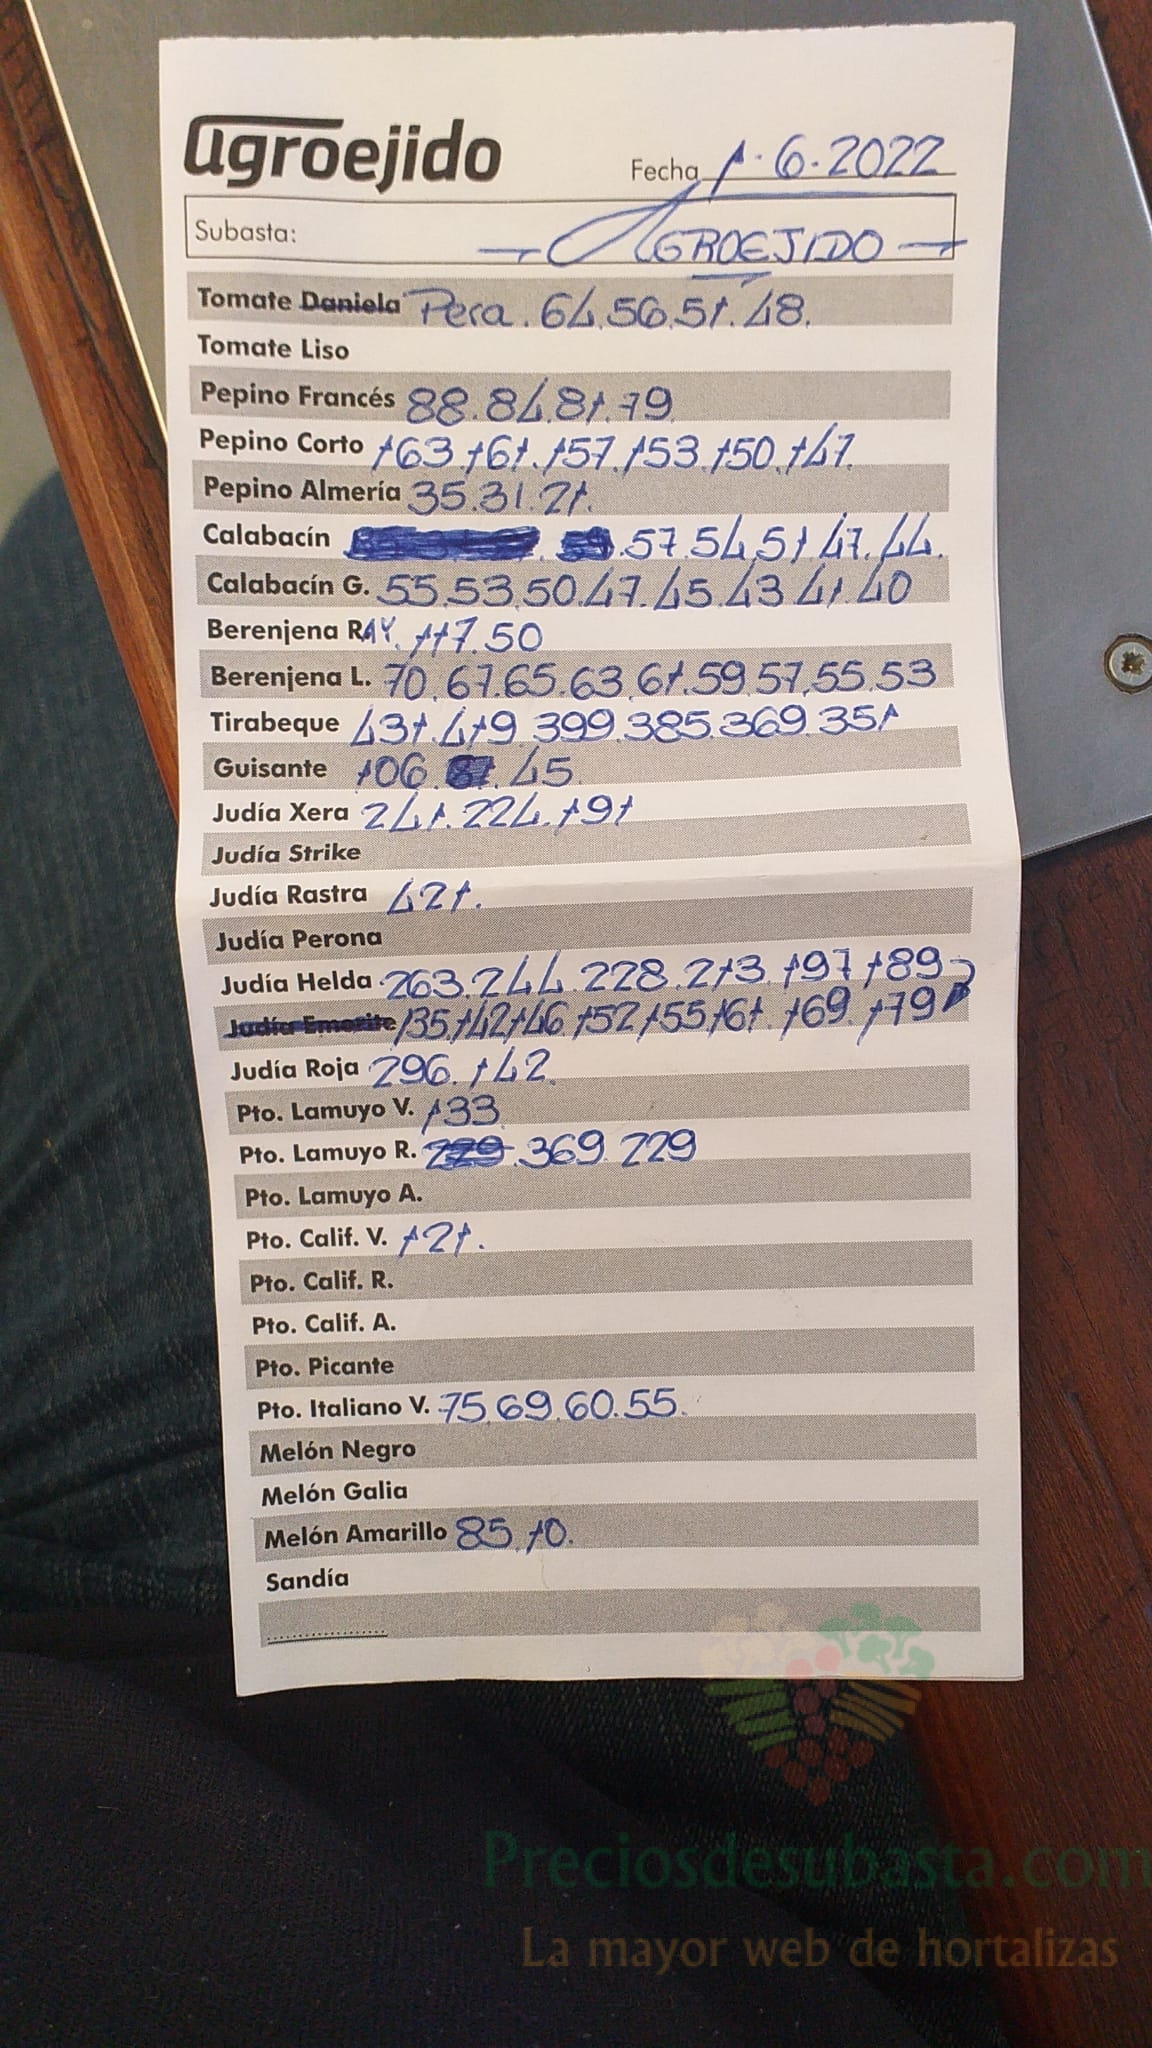 agroejido
Fecha 1.6.2022
Subasta: — AGROEJIDO —
Tomate Daniela Pera. 64.56.51.48.
Tomate Liso
Pepino Francés 88.84.81.79
Pepino Corto 163.161.157.153.150.147.
Pepino Almería 35.31.21.
Calabacín .57.54.51.47.44.
Calabacín G. 55.53.50.47.45.43.41.40
Berenjena RAY. 117.50
Berenjena L. 70.67.65.63.61.59.57.55.53
Tirabeque 431.419.399.385.369.351
Guisante 106. .45.
Judía Xera 241.224.191
Judía Strike
Judía Rastra 421.
Judía Perona
Judía Helda 263.244.228.213.197.189
Judía Emerite 135.142.146.152.155.161.169.179
Judía Roja 296.142.
Pto. Lamuyo V. 133.
Pto. Lamuyo R. 229.369.229
Pto. Lamuyo A.
Pto. Calif. V. 121.
Pto. Calif. R.
Pto. Calif. A.
Pto. Picante
Pto. Italiano V. 75.69.60.55.
Melón Negro
Melón Galia
Melón Amarillo 85.10.
Sandía
Preciosdesubasta.com
La mayor web de hortalizas